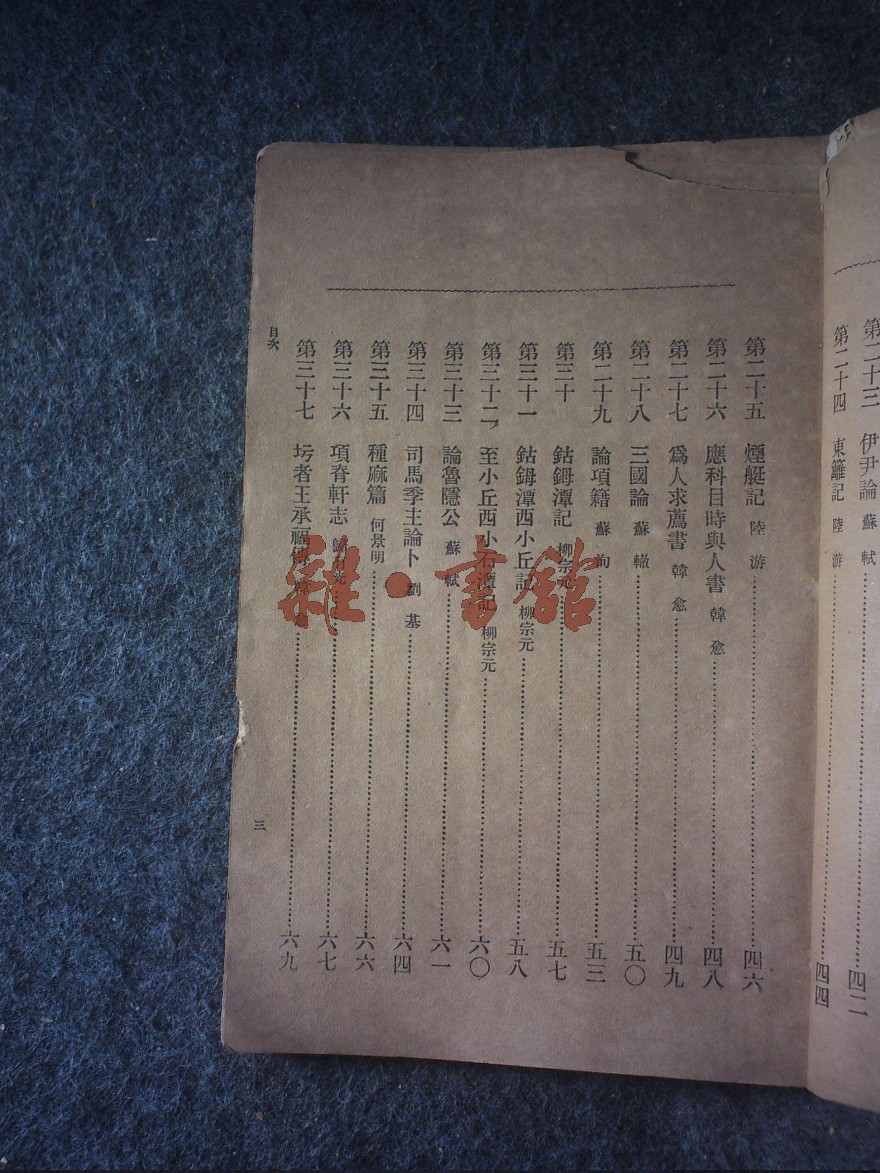 第二十三 伊尹論 蘇軾 四二
第二十四 東籬記 陸游 四四
第二十五 煙艇記 陸游 四六
第二十六 應科目時與人書 韓愈 四八
第二十七 爲人求薦書 韓愈 四九
第二十八 三國論 蘇轍 五〇
第二十九 論項籍 蘇洵 五三
第三十 鈷鉧潭記 柳宗元 五七
第三十一 鈷鉧潭西小丘記 柳宗元 五八
第三十二 至小丘西小石潭記 柳宗元 六〇
第三十三 論魯隱公 蘇軾 六一
第三十四 司馬季主論卜 劉基 六四
第三十五 種麻篇 何景明 六六
第三十六 項脊軒志 歸有光 六七
第三十七 圬者王承福傳 韓 六九
目次
三
雜·書舘